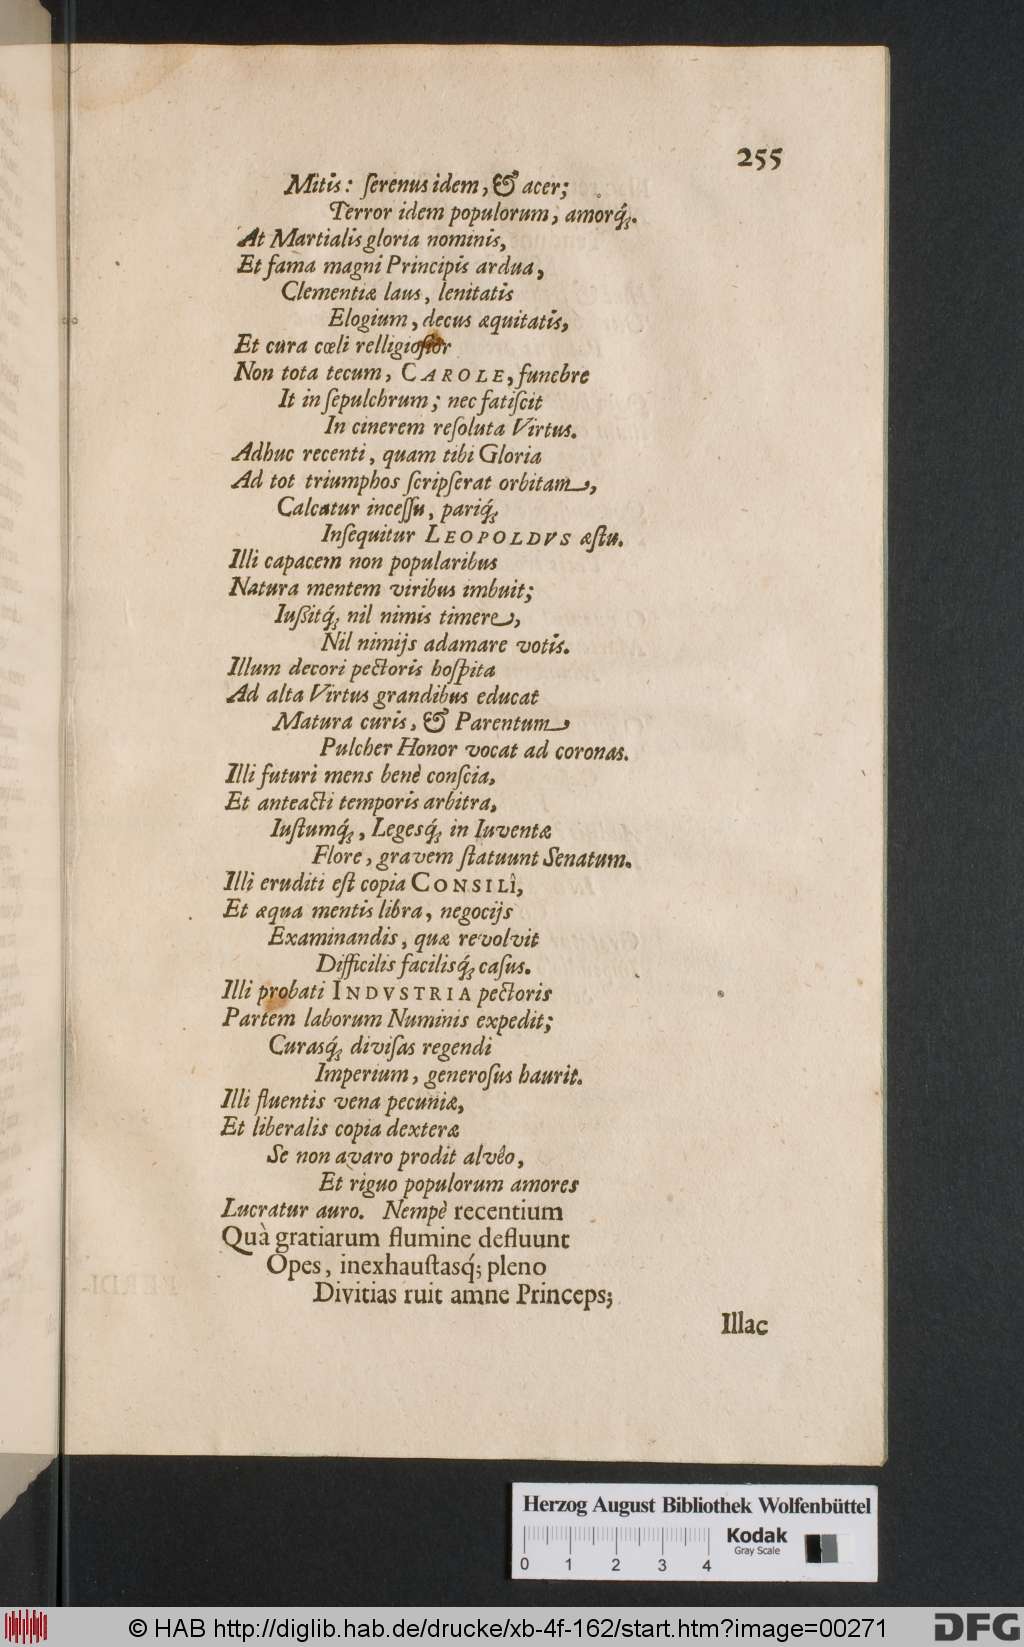 255
Mitis: ſerenus idem, & acer;
Terror idem populorum, amorq́;.
At Martialis gloria nominis,
Et fama magni Principis ardua,
Clementiæ laus, lenitatis
Elogium, decus æquitatis,
Et cura cœli relligioſior
Non tota tecum, CAROLE, funebre
It in ſepulchrum; nec fatiſcit
In cinerem reſoluta Virtus.
Adhuc recenti, quam tibi Gloria
Ad tot triumphos ſcripſerat orbitam,
Calcatur inceſſu, pariq́;
Inſequitur LEOPOLDVS æſtu.
Illi capacem non popularibus
Natura mentem viribus imbuit;
Iuſsitq́; nil nimis timere,
Nil nimijs adamare votis.
Illum decori pectoris hoſpita
Ad alta Virtus grandibus educat
Matura curis, & Parentum
Pulcher Honor vocat ad coronas.
Illi futuri mens benè conſcia,
Et anteacti temporis arbitra,
Iuſtumq́;, Legesq́; in Iuventæ
Flore, gravem ſtatuunt Senatum.
Illi eruditi eſt copia CONSILÎ,
Et æqua mentis libra, negocijs
Examinandis, quæ revolvit
Difficilis facilisq́; caſus.
Illi probati INDVSTRIA pectoris
Partem laborum Numinis expedit;
Curasq́; diviſas regendi
Imperium, generoſus haurit.
Illi fluentis vena pecuniæ,
Et liberalis copia dexteræ
Se non avaro prodit alvêo,
Et riguo populorum amores
Lucratur auro. Nempè recentium
Quà gratiarum flumine defluunt
Opes, inexhauſtasq́; pleno
Divitias ruit amne Princeps;
Illac
Herzog August Bibliothek Wolfenbüttel
Kodak
Gray Scale
0 1 2 3 4
© HAB http://diglib.hab.de/drucke/xb-4f-162/start.htm?image=00271
DFG